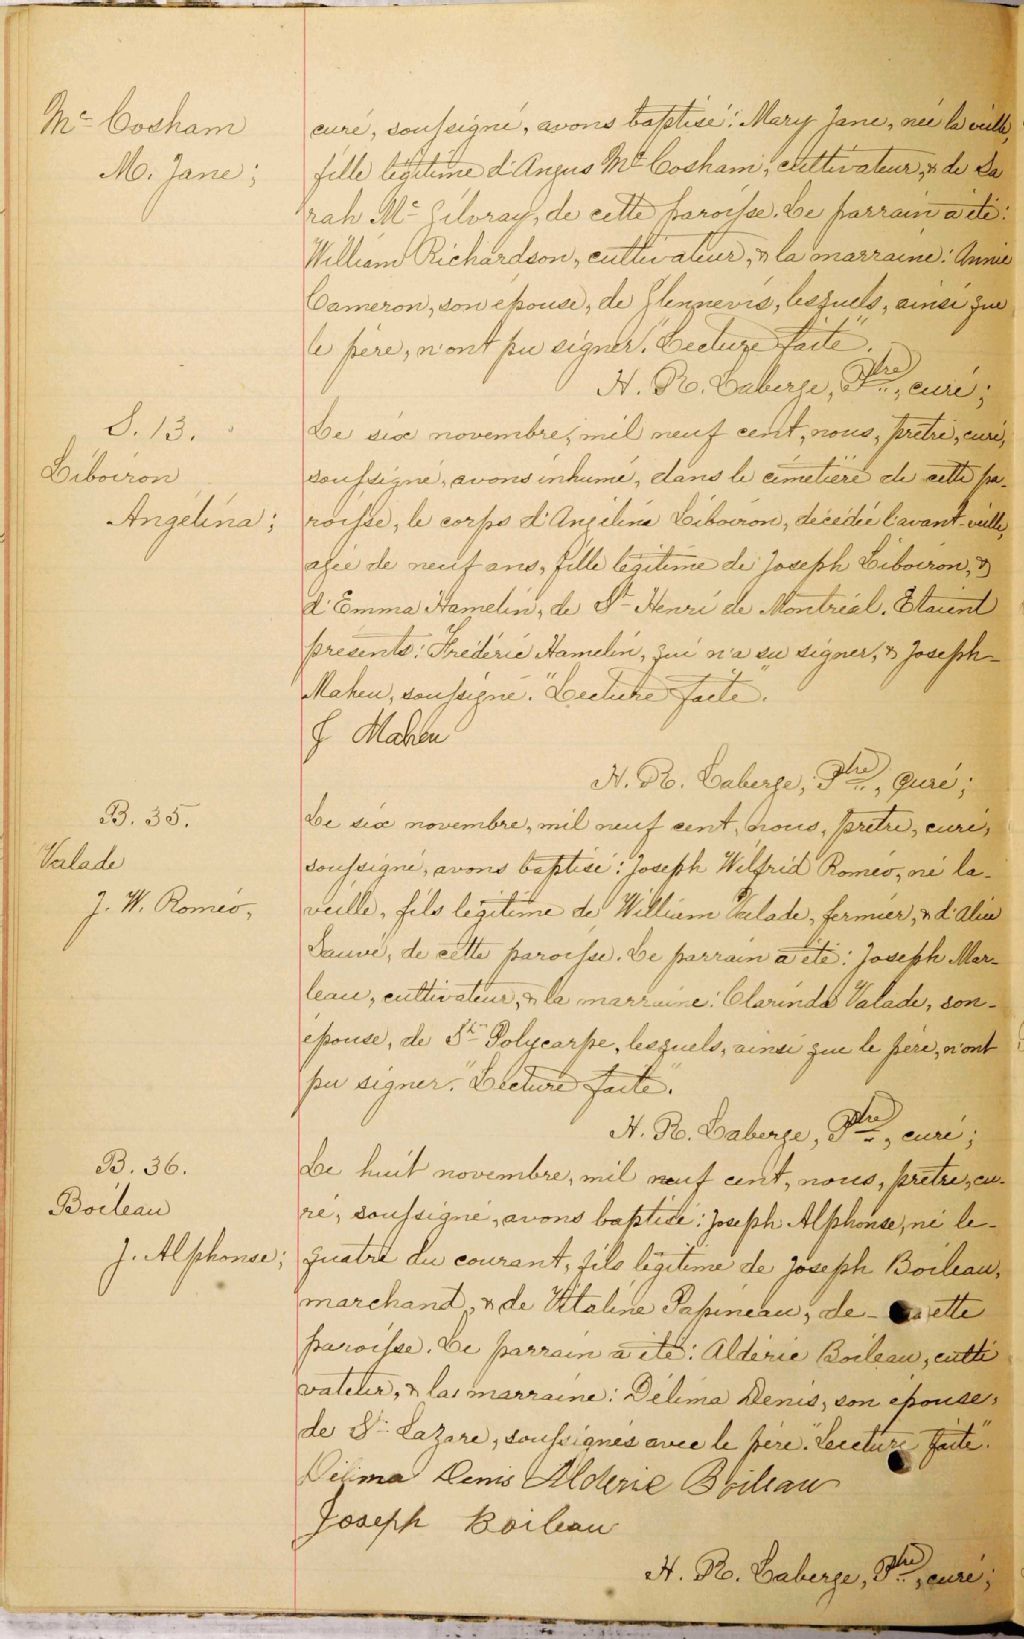 Mc Cosham
M. Jane;
curé, soussigné, avons baptisé: Mary Jane, née la veille,
fille légitime d'Angus Mc Cosham, cultivateur, & de Sa
rah Mc Gilvray, de cette paroisse. Le parrain a été:
William Richardson, cultivateur, & la marraine: Annie
Cameron, son épouse, de Glennevis, lesquels, ainsi que
le père, n'ont pu signer. "Lecture faite".
H. R. Laberge, Ptre, curé;
S. 13.
Liboiron
Angélina;
Le six novembre, mil neuf cent, nous, prêtre, curé,
soussigné, avons inhumé, dans le cimetière de cette pa-
roisse, le corps d'Angélina Liboiron, décédée l'avant-veille,
agée de neuf ans, fille légitime de Joseph Liboiron, &
d'Emma Hamelin, de St Henri de Montréal. Etaient
présents: Frédéric Hamelin, qui n'a su signer, & Joseph-
Maheu, soussigné. "Lecture faite".
J Maheu
H. R. Laberge, Ptre, curé;
B. 35.
Valade
J. W. Roméo,
Le six novembre, mil neuf cent, nous, prêtre, curé,
soussigné, avons baptisé: Joseph Wilfrid Roméo, né la-
veille, fils légitime de William Valade, fermier, & d'Alice
Sauvé, de cette paroisse. Le parrain a été: Joseph Mar-
leau, cultivateur, & la marraine: Clarinda Valade, son-
épouse, de St Polycarpe, lesquels, ainsi que le père, n'ont
pu signer. "Lecture faite".
H. R. Laberge, Ptre, curé;
B. 36.
Boileau
J. Alphonse;
Le huit novembre, mil neuf cent, nous, prêtre, cu-
ré, soussigné, avons baptisé: Joseph Alphonse, né le-
quatre du courant, fils légitime de Joseph Boileau,
marchand, & de Vitaline Papineau, de- cette
paroisse. Le parrain a été: Aldéric Boileau, culti
vateur, & la marraine: Délima Denis, son épouse,
de St Lazare, soussignés avec le père. "Lecture faite".
Délima Denis Alderic Boileau
Joseph Boileau
H. R. Laberge, Ptre, curé;